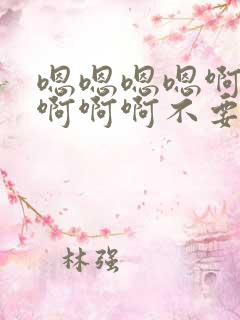 嗯嗯嗯嗯啊
啊啊啊不要
林强